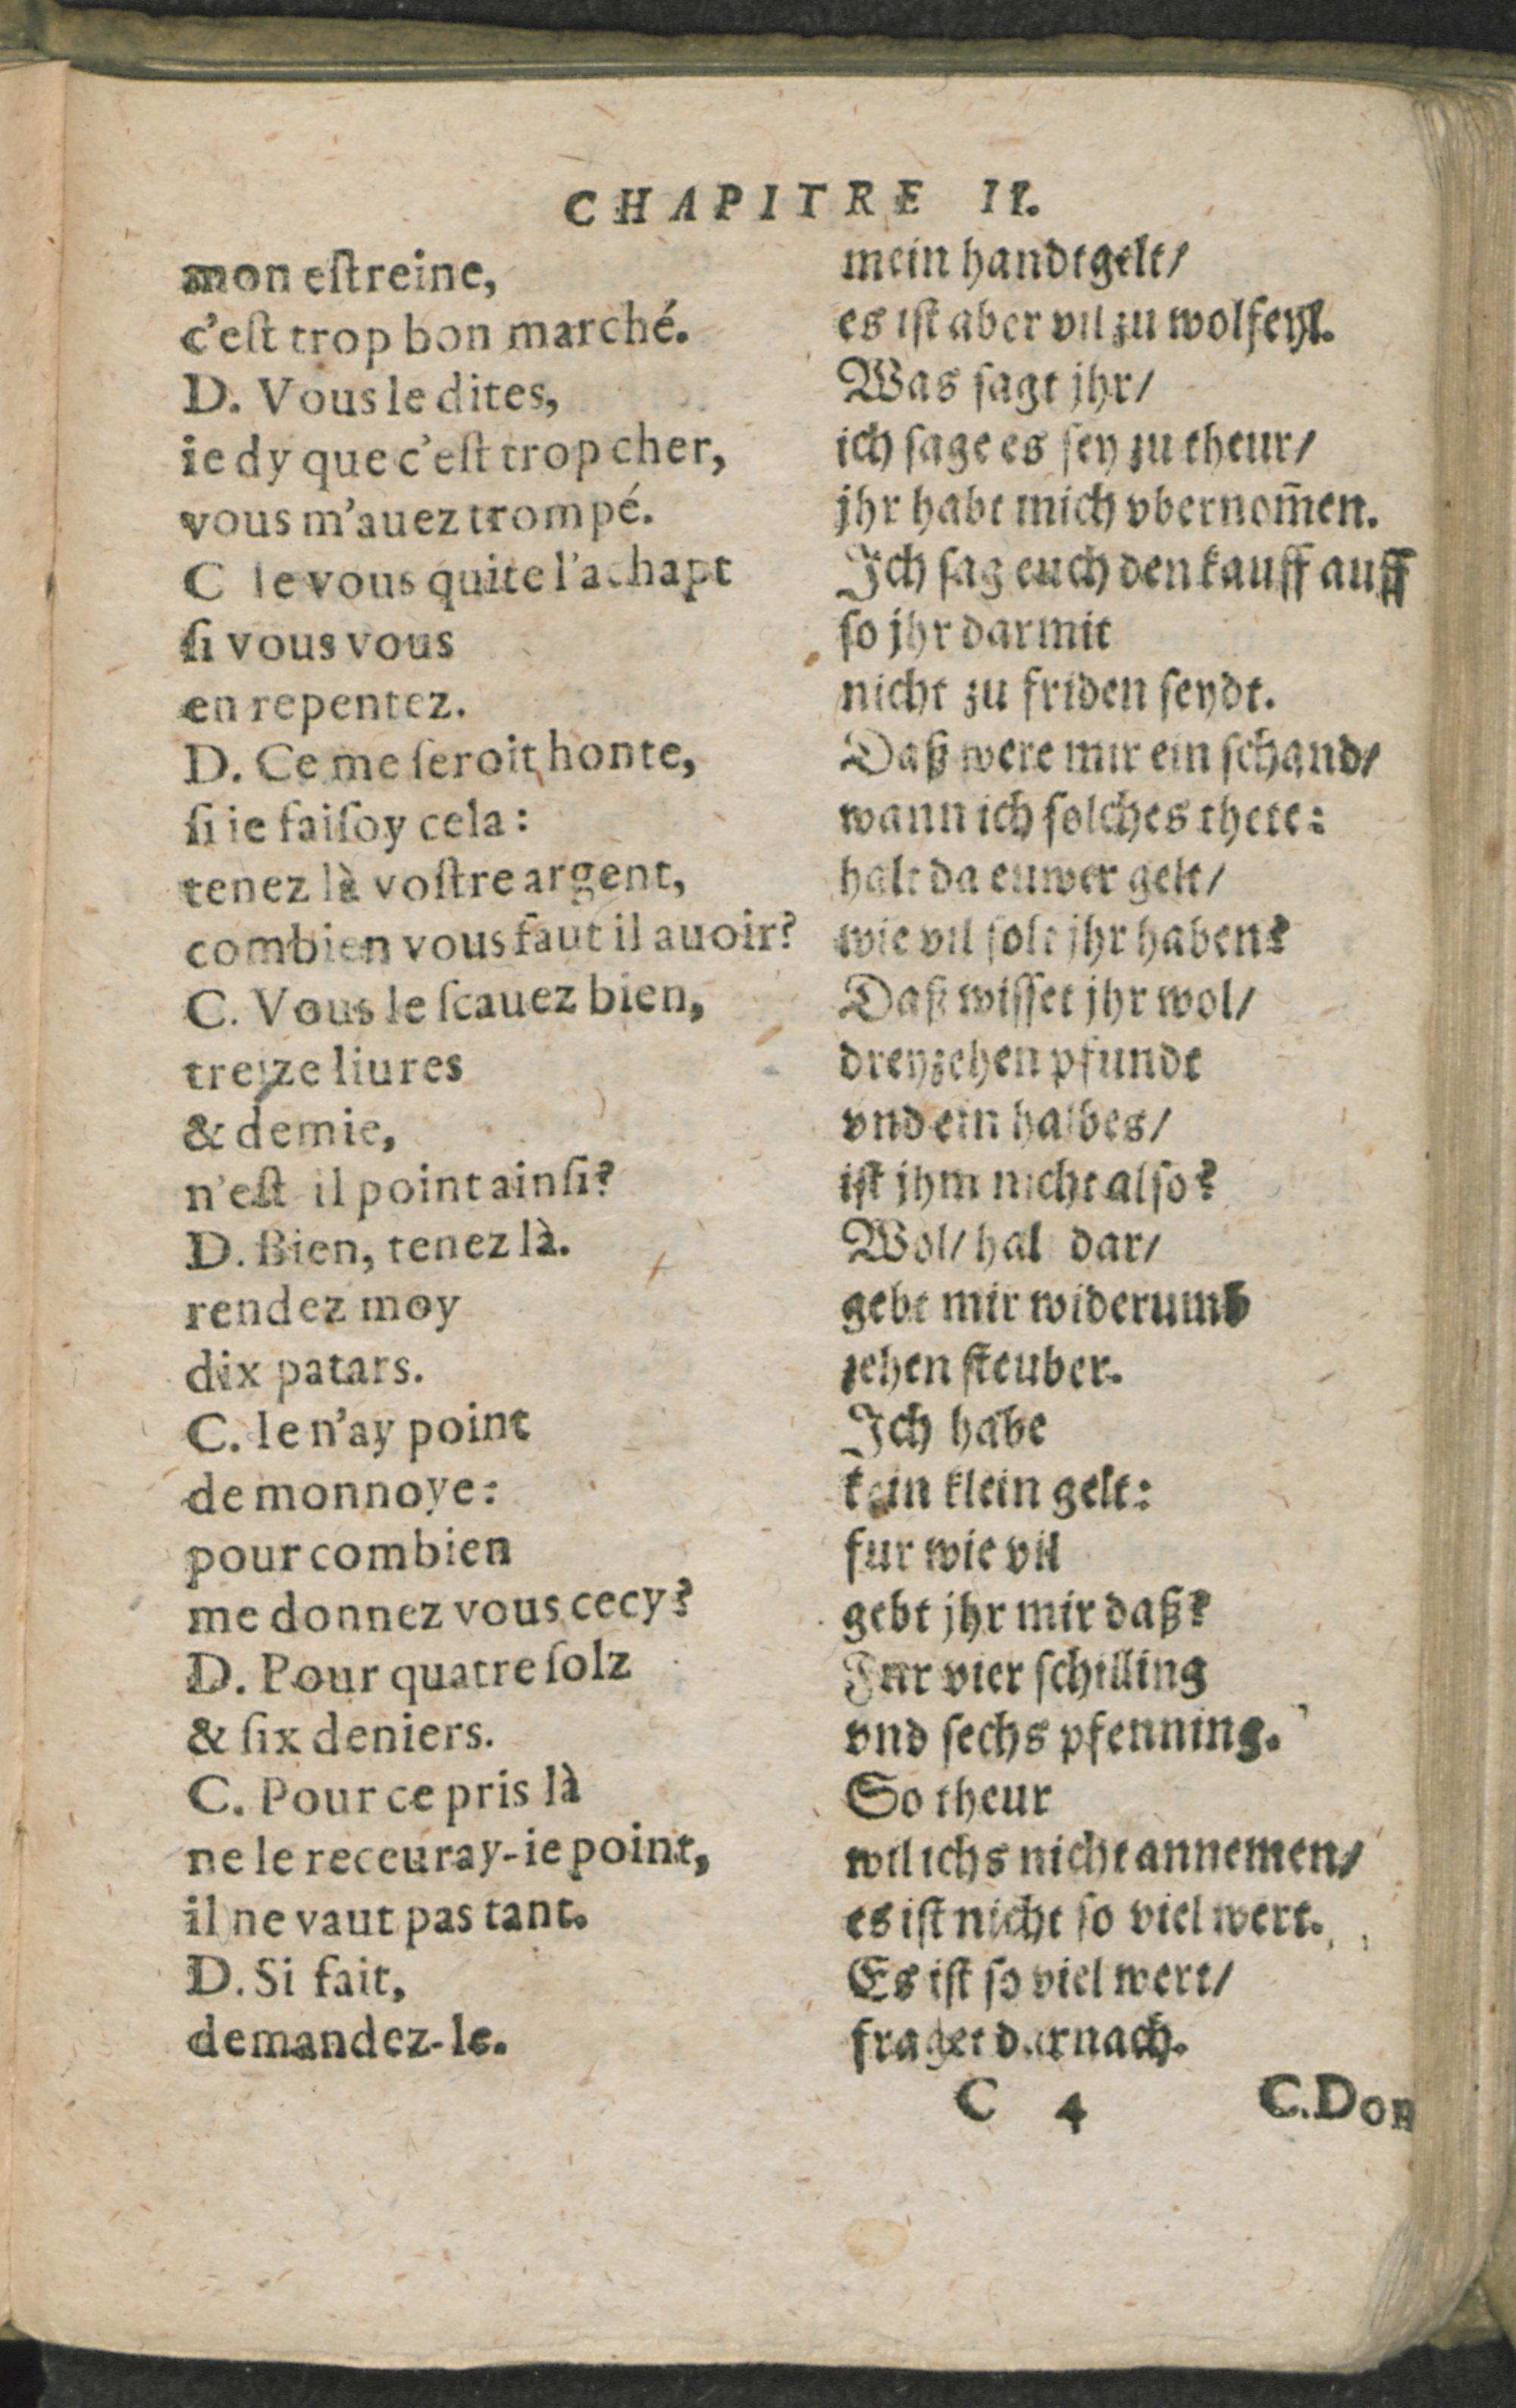 CHAPITRE II.
mon eſtreine,
c'eſt trop bon marché.
D. Vous le dites,
ie dy que c'eſt trop cher,
vous m'auez trompé.
C Ie vous quite l'achapt
ſi vous vous
en repentez.
D. Ce me ſeroit honte,
ſi ie faiſoy cela:
tenez là voſtre argent,
combien vous faut il auoir?
C. Vous le ſcauez bien,
treize liures
& demie,
n'eſt il point ainſi?
D. Bien, tenez là.
rendez moy
dix patars.
C. Ie n'ay point
de monnoye:
pour combien
me donnez vous cecy?
D. Pour quatre ſolz
& ſix deniers.
C. Pour ce pris là
ne le receuray-ie point,
il ne vaut pas tant.
D. Si fait,
demandez-le.
mein handtgelt/
es iſt aber vil zu wolfeyl.
Was ſagt jhr/
ich ſage es ſey zu theur/
jhr habt mich vbernom̄en.
Ich ſag euch den kauff auff
ſo jhr darmit
nicht zu friden ſeydt.
Daß were mir ein ſchand/
wann ich ſolches thete:
halt da euwer gelt/
wie vil ſolt jhr haben?
Daß wiſſet jhr wol/
dreyzehen pfundt
vnd ein halbes/
iſt jhm nicht alſo?
Wol/ hal dar/
gebt mir widerumb
zehen ſteuber.
Ich habe
kein klein gelt:
fur wie vil
gebt jhr mir daß?
Fur vier ſchilling
vnd ſechs pfenning.
So theur
wil ichs nicht annemen/
es iſt nicht ſo viel wert.
Es iſt ſo viel wert/
fraget darnach.
C 4
C. Don